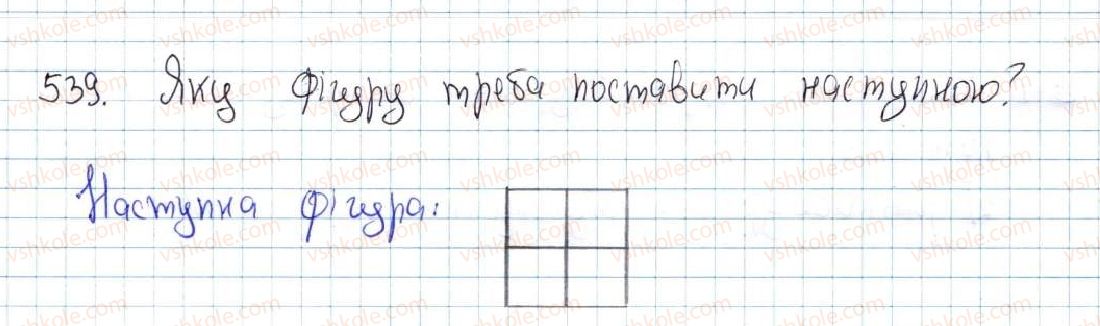 539. Яку фігуру треба поставити наступною?
Наступна фігура: